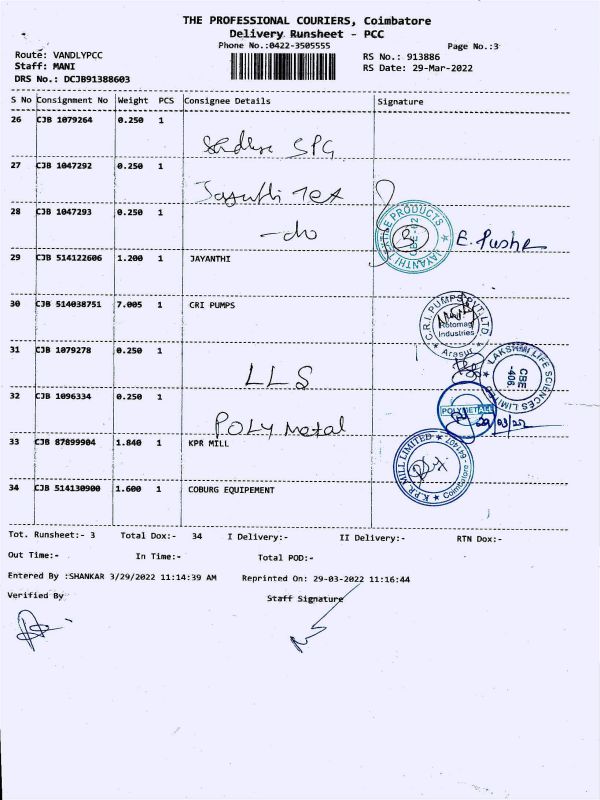 THE PROFESSIONAL COURIERS, Coimbatore
Delivery Runsheet - PCC
Phone No.:0422-3505555 Page No.:3
Route: VANDLYPCC RS No.: 913886
Staff: MANI RS Date: 29-Mar-2022
DRS No.: DCJB91388603
S No Consignment No Weight PCS Consignee Details Signature
26 CJB 1079264 0.250 1
SPG
27 CJB 1047292 0.250 1
Jayanthi Tex
28 CJB 1047293 0.250 1
-do
JAYANTHI TEXTILE PRODUCTS
E. Pushpa
29 CJB 514122606 1.200 1 JAYANTHI
30 CJB 514038751 7.005 1 CRI PUMPS
C.R.I. PUMPS PVT. LTD.
Rotomag
Industries
Arasur
31 CJB 1079278 0.250 1
LLS
LAKSHMI LIFE SCIENCES LIMITED
CBE
-406
32 CJB 1096334 0.250 1
POLY Metal
POLYMETALL
29/03/22
33 CJB 87899904 1.840 1 KPR MILL
K.P.R. MILL LIMITED
Coimbatore - 641407
34 CJB 514130900 1.600 1 COBURG EQUIPEMENT
Tot. Runsheet:- 3 Total Dox:- 34 I Delivery:- II Delivery:- RTN Dox:-
Out Time:- In Time:- Total POD:-
Entered By :SHANKAR 3/29/2022 11:14:39 AM Reprinted On: 29-03-2022 11:16:44
Verified By Staff Signature